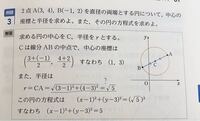 問題 3
2点A(3, 4), B(−1, 2)を直径の両端とする円について, 中心の
座標と半径を求めよ。また, その円の方程式を求めよ。
解説
求める円の中心をC, 半径をrとする。
Cは線分ABの中点で, 中心の座標は
(3+(−1)/2, 4+2/2) すなわち (1, 3)
また, 半径は
r=CA=√(3−1)²+(4−3)²=√5
この円の方程式は (x−1)²+(y−3)²=(√5)²
すなわち (x−1)²+(y−3)²=5
y
A
B
C
O
x